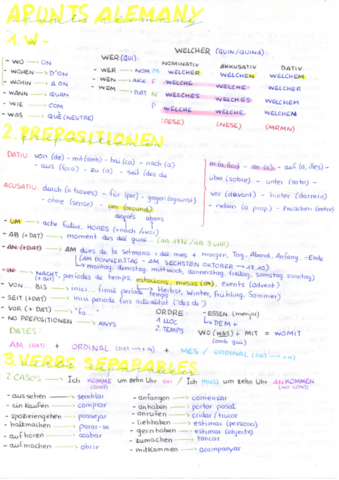 APUNTS ALEMANY
1. W-
WELCHER (QUIN/QUINA):
- WO → ON
- WOHER → D'ON
- WOHIN → A ON
- WANN → QUAN
- WIE → COM
- WAS → QUÈ (NEUTRE)
WER (QUI):
- WER → NOM
- WEN → AKK
- WEM → DAT
NOMINATIV AKKUSATIV DATIV
M WELCHER WELCHEN WELCHEM
F WELCHE WELCHE WELCHER
N WELCHES WELCHES WELCHEM
P WELCHE WELCHE WELCHEN
(RESE) (NESE) (MRMN)
2. PREPOSITIONEN
DATIU: von (de) - mit (amb) - bei (ca) - nach (a)
- aus (fora) - zu (a) - seit (des de
ACUSATIU: durch (a través) - für (per) - gegen (against)
- ohne (sense) - um (around)
in (a, ) - an (a) - auf (a, dles) -
über (sobre) - unter (sota) -
vor (davant) - hinter (darrera)
- neben (a prop) - zwischen (entre)
- UM → acte futur, HORES (+nach /vor)
- AB (+DAT) → moment des del qual
- AN (+DAT) → AM dies de la setmana i del mes + morgen, Tag, Abend, Anfang, Ende
(AM DONNERSTAG - AM SECHSTEN OKTOBER → 11.10)
montag, dienstag, mittwoch, donnerstag, freitag, samstag, sonntag
- IN → NACHT, períodes de temps, estacions, mesos (IM), events (advent)
(+DAT) Herbst, Winter, Frühling, Sommer
- VON... BIS → inici... final període temps
- SEIT (+DAT) → inici període fins actualitat ("des de")
- VOR (+DAT) → "fa..."
- NO PREPOSITIONEN → ANYS
ORDRE
1 LLOC
2 TEMPS
- ESSEN (menjar)
→ DEM +
WO (WAS) + MIT = WOMIT
(amb què)
DATES:
AM (DAT) + ORDINAL (DAT → +N) + MES / ORDINAL (DAT → +N)
3. VERBS SEPARABLES
2 CASOS → Ich KOMME um zehn Uhr an / Ich muss um zehn Uhr ANKOMMEN
- aussehen → semblar
- einkaufen → comprar
- spazierengehen → passejar
- haltmachen → parar-se
- aufhören → acabar
- aufmachen → obrir
- anfangen → començar
- anhaben → portar posat
- anrufen → cridar / trucar
- liebhaben → estimar (persona)
- gernhaben → estimar (objecte)
- zumachen → tancar
- mitkommen → acompanyar